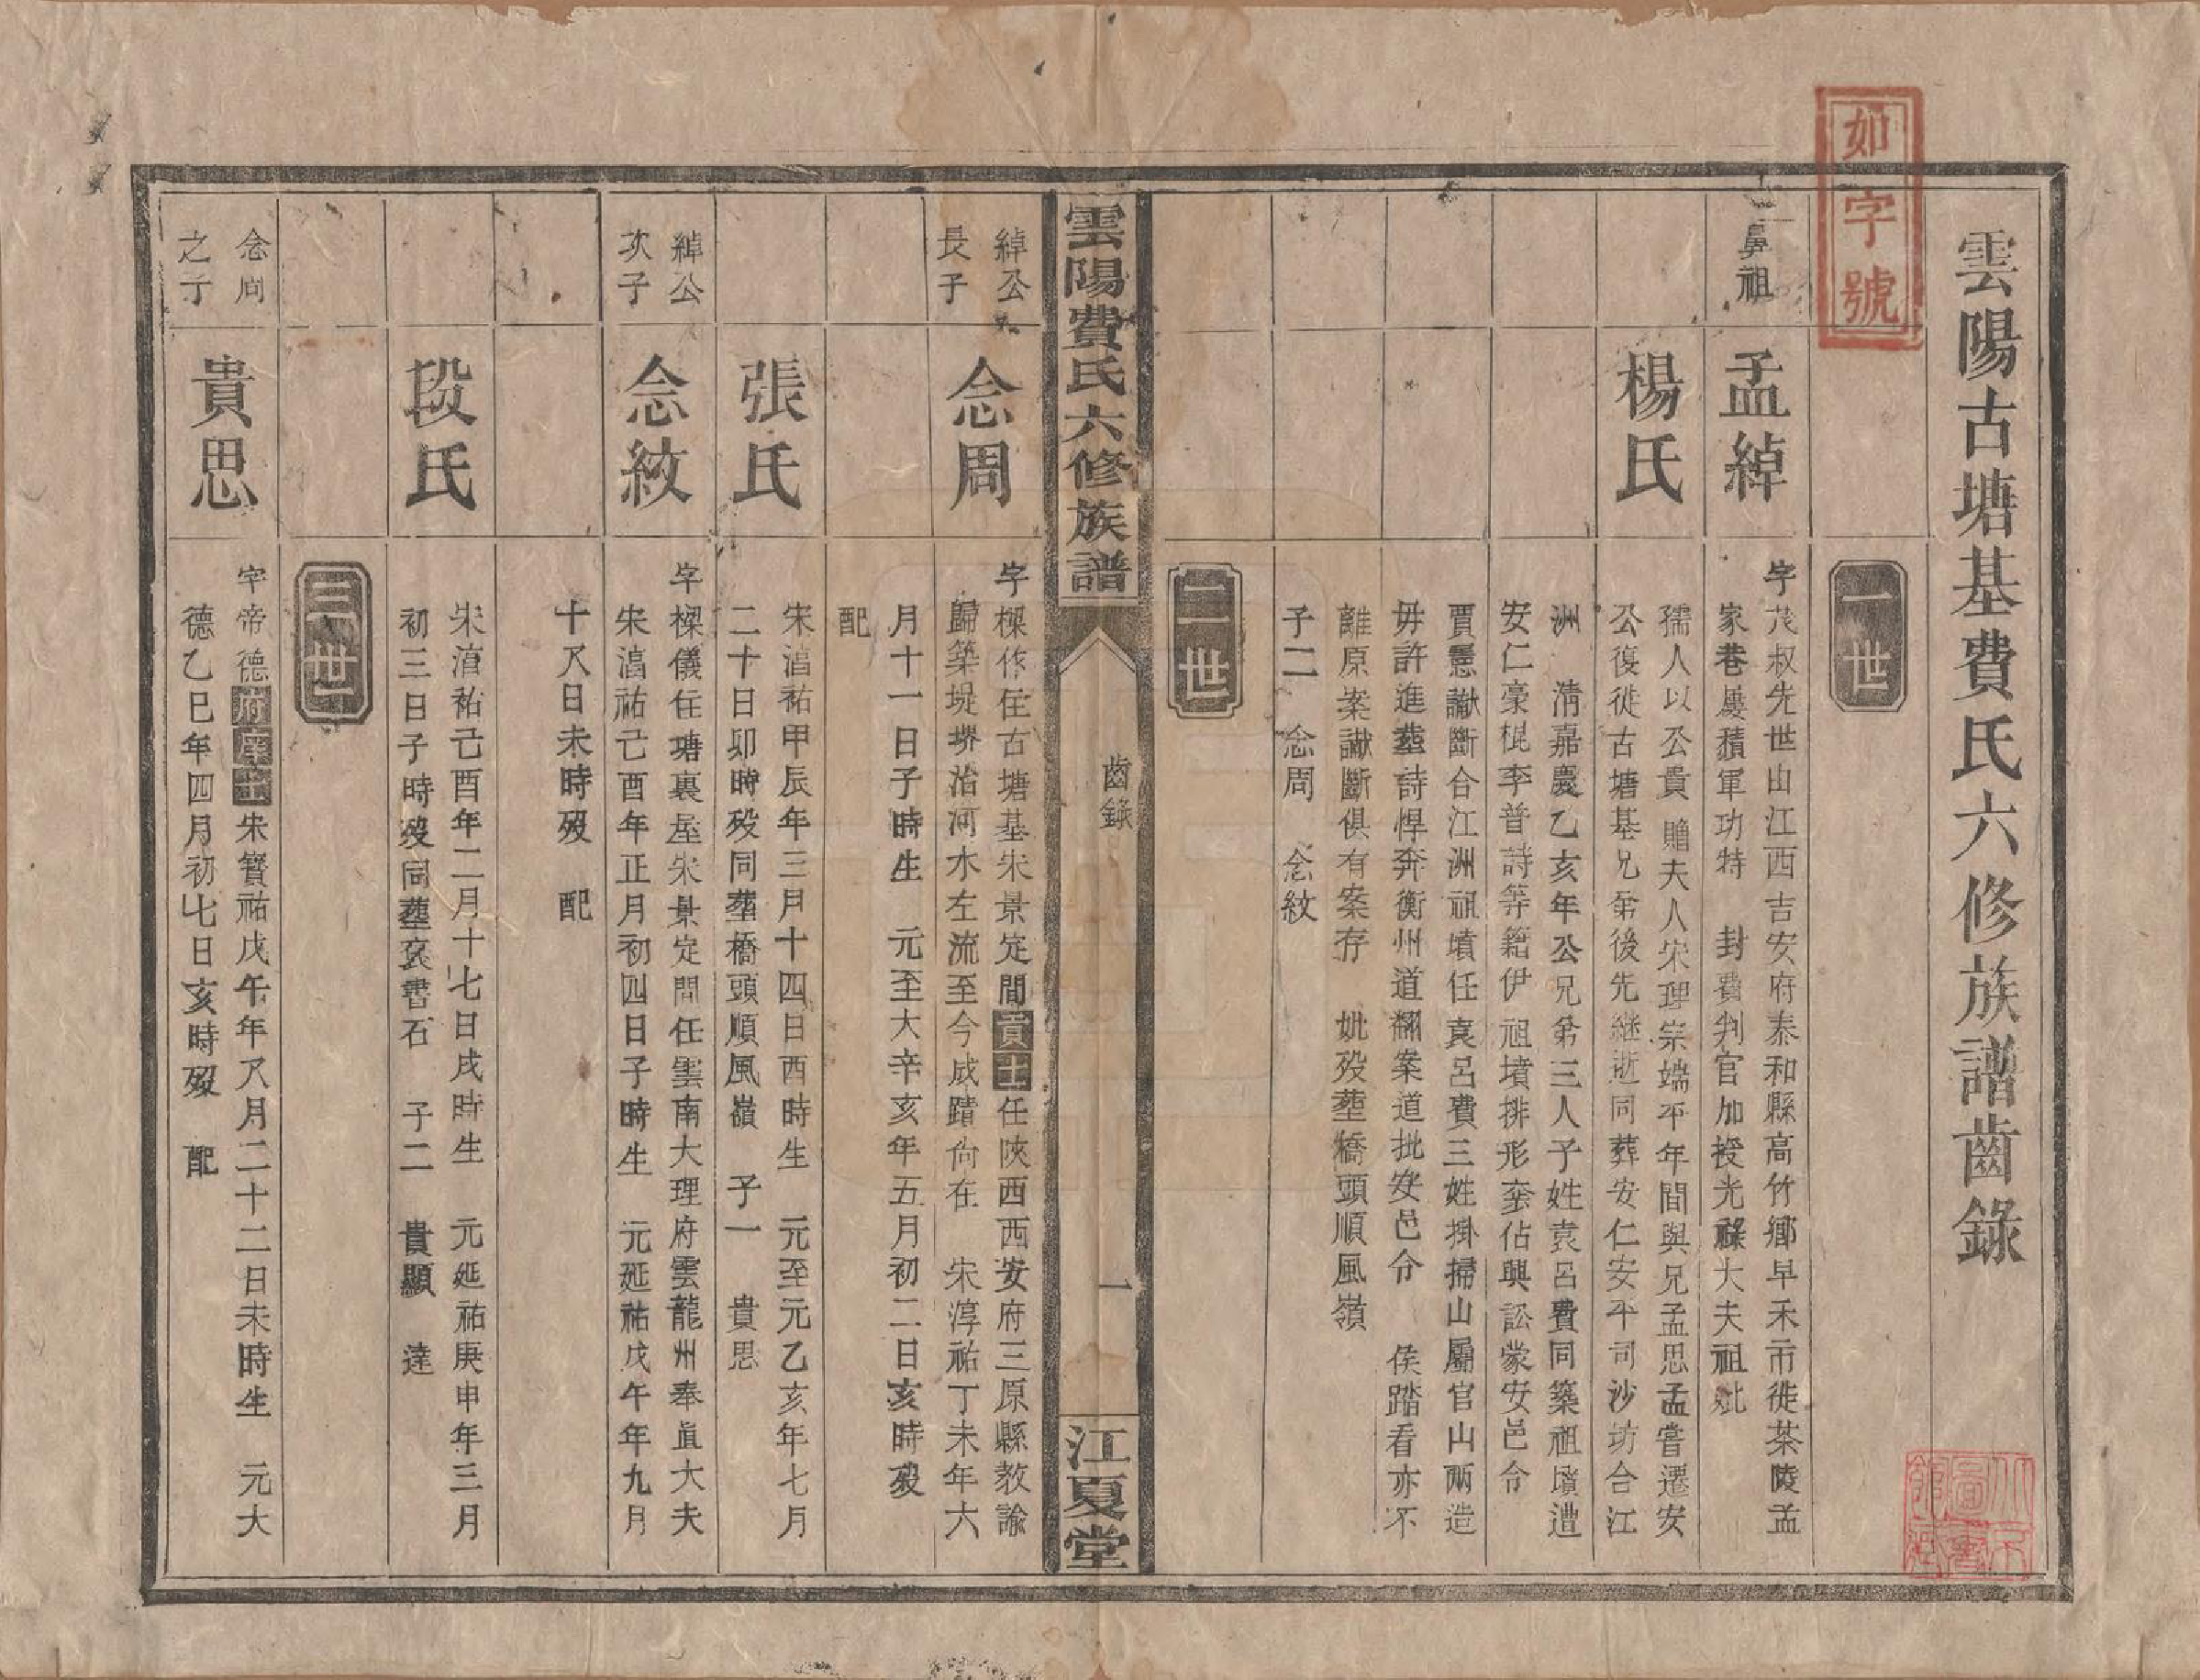 雲陽古塘基費氏六修族譜齒錄
如字號
一世
鼻祖
孟綽
字茂叔先世山江西吉安府泰和縣高竹鄉早禾市徙茶陵孟
家巷屢積軍功特　封費判官加授光祿大夫祖妣
楊氏
孺人以公貴　贈夫人宋理宗端平年間與兄孟思孟嘗遷安
公復徙古塘基兄弟後先繼逝同葬安仁安平司沙坊合江
洲　清嘉慶乙亥年公兄弟三人子姓袁呂費同築祖墳遭
安仁豪棍李普詩等籍伊祖墳排形塋佔興訟蒙安邑令
賈慿讞斷合江洲祖墳任袁呂費三姓掛掃山屬官山兩造
毋許進塟詩悍奔衡州道翻案道批安邑令　侯踏看亦不
離原案讞斷俱有案存　妣歿塟橋頭順風嶺
子二　念周　念紋
二世
雲陽費氏六修族譜
齒錄
一
江夏堂
綽公
長子
念周
字樑作住古塘基宋景定間貢士任陝西西安府三原縣教諭
歸築堤堺治河水左流至今成蹟尙在　宋淳祐丁未年六
月十一日子時生　元至大辛亥年五月初二日亥時歿
配
張氏
宋淳祐甲辰年三月十四日酉時生　元至元乙亥年七月
二十日卯時歿同塟橋頭順風嶺　子一　貴思
綽公
次子
念紋
字樑儀住塘裏屋宋景定間任雲南大理府雲龍州奉直大夫
宋淳祐己酉年正月初四日子時生　元延祐戊午年九月
十八日未時歿　配
段氏
宋淳祐己酉年二月十七日戌時生　元延祐庚申年三月
初三日子時歿同塟袁書石　子二　貴顯　達
三世
念周
之子
貴思
字帝德府庠士宋寶祐戊午年八月二十二日未時生　元大
德乙巳年四月初七日亥時歿　配